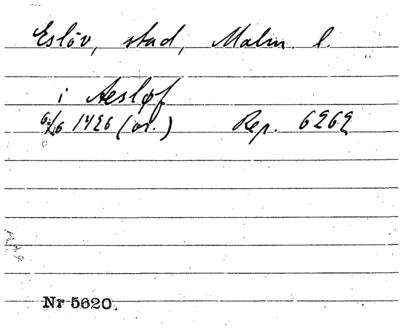 Eslöv, stad, Malm. l.
i Aesløf
6/6 1426 (or.) Rep. 6262
Nr 5620.